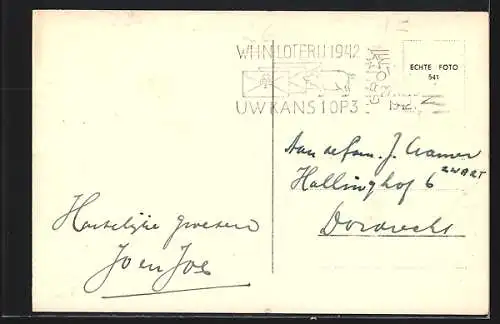 WHN LOTERIJ 1942
UW KANS 1 OP 3
ECHTE FOTO
541
Aan de fam. J. Cramer
ZWART
Hallinghof 6
Dordrecht
Hartelijke groeten
Jo en Jos